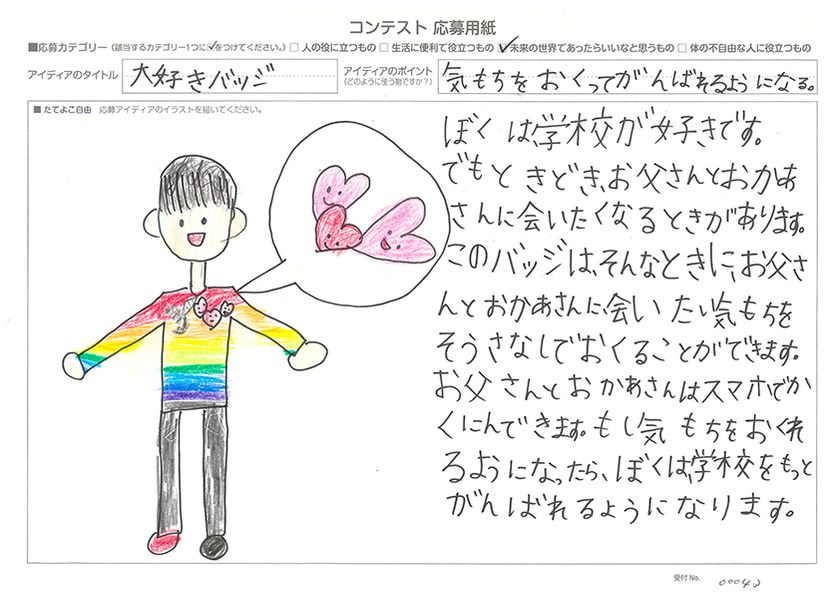 コンテスト 応募用紙
■応募カテゴリー (該当するカテゴリー1つに☑をつけてください。) □ 人の役に立つもの □ 生活に便利で役立つもの ☑ 未来の世界であったらいいなと思うもの □ 体の不自由な人に役立つもの
アイディアのタイトル 大好きバッジ アイディアのポイント (どのように使う物ですか?) 気もちをおくってがんばれるようになる。
■ たてよこ自由 応募アイディアのイラストを描いてください。
ぼくは、学校が好きです。
でもときどき、お父さんとおかあ
さんに会いたくなるときがあります。
このバッジは、そんなときに、お父さ
んとおかあさんに、会いたい気もちを
そうさなしでおくることができます。
お父さんとおかあさんはスマホでか
くにんできます。もし気もちをおくれ
るようになったら、ぼくは、学校をもっと
がんばれるようになります。
受付No. 00042